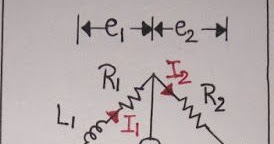 e₁ e₂
R₁ I₂
R₂
L₁ I₁